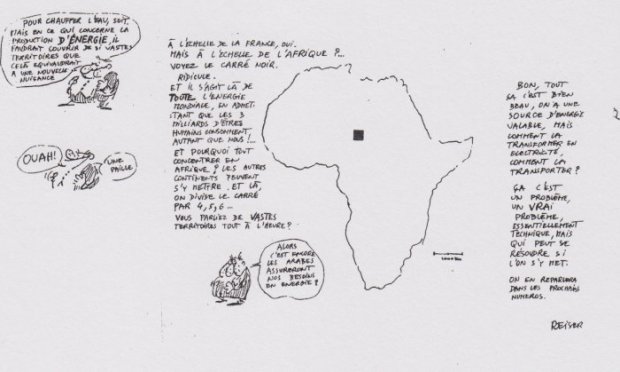 POUR CHAUFFER L'EAU, SOIT.
MAIS EN CE QUI CONCERNE LA
PRODUCTION D'ÉNERGIE, IL
FAUDRAIT COUVRIR DE SI VASTES
TERRITOIRES QUE
CELÀ EQUIVAUDRAIT
A UNE NOUVELLE
NUISANCE
OUAH!
UNE
PAILLE
À L'ÉCHELLE DE LA FRANCE, OUI.
MAIS À L'ÉCHELLE DE L'AFRIQUE?...
VOYEZ LE CARRÉ NOIR.
RIDICULE.
ET IL S'AGIT LÀ DE
TOUTE L'ENERGIE
MONDIALE, EN ADMET-
TANT QUE LES 3
MILLIARDS D'ÊTRES
HUMAINS CONSOMMENT
AUTANT QUE NOUS!...
ET POURQUOI TOUT
CONCENTRER EN
AFRIQUE? LES AUTRES
CONTINENTS PEUVENT
S'Y METTRE. ET LÀ,
ON DIVISE LE CARRÉ
PAR 4, 5, 6...
VOUS PARLIEZ DE VASTES
TERRITOIRES TOUT À L'HEURE?
ALORS
C'EST ENCORE
LES ARABES
ASSURERONT
NOS BESOINS
EN ENERGIE?
BON, TOUT
ÇA C'EST BIEN
BEAU, ON A UNE
SOURCE D'ENERGIE
VALABLE, MAIS
COMMENT LA
TRANSFORMER EN
ELECTRICITÉ,
COMMENT LA
TRANSPORTER?
ÇA C'EST
UN PROBLÈME,
UN VRAI
PROBLÈME,
ESSENTIELLEMENT
TECHNIQUE, MAIS
QUI PEUT SE
RÉSOUDRE SI
L'ON S'Y MET.
ON EN REPARLERA
DANS LES PROCHAINS
NUMEROS.
REISER